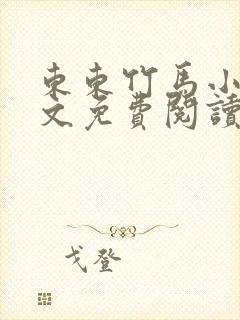 東東竹馬小
文免費閱讀
戈登